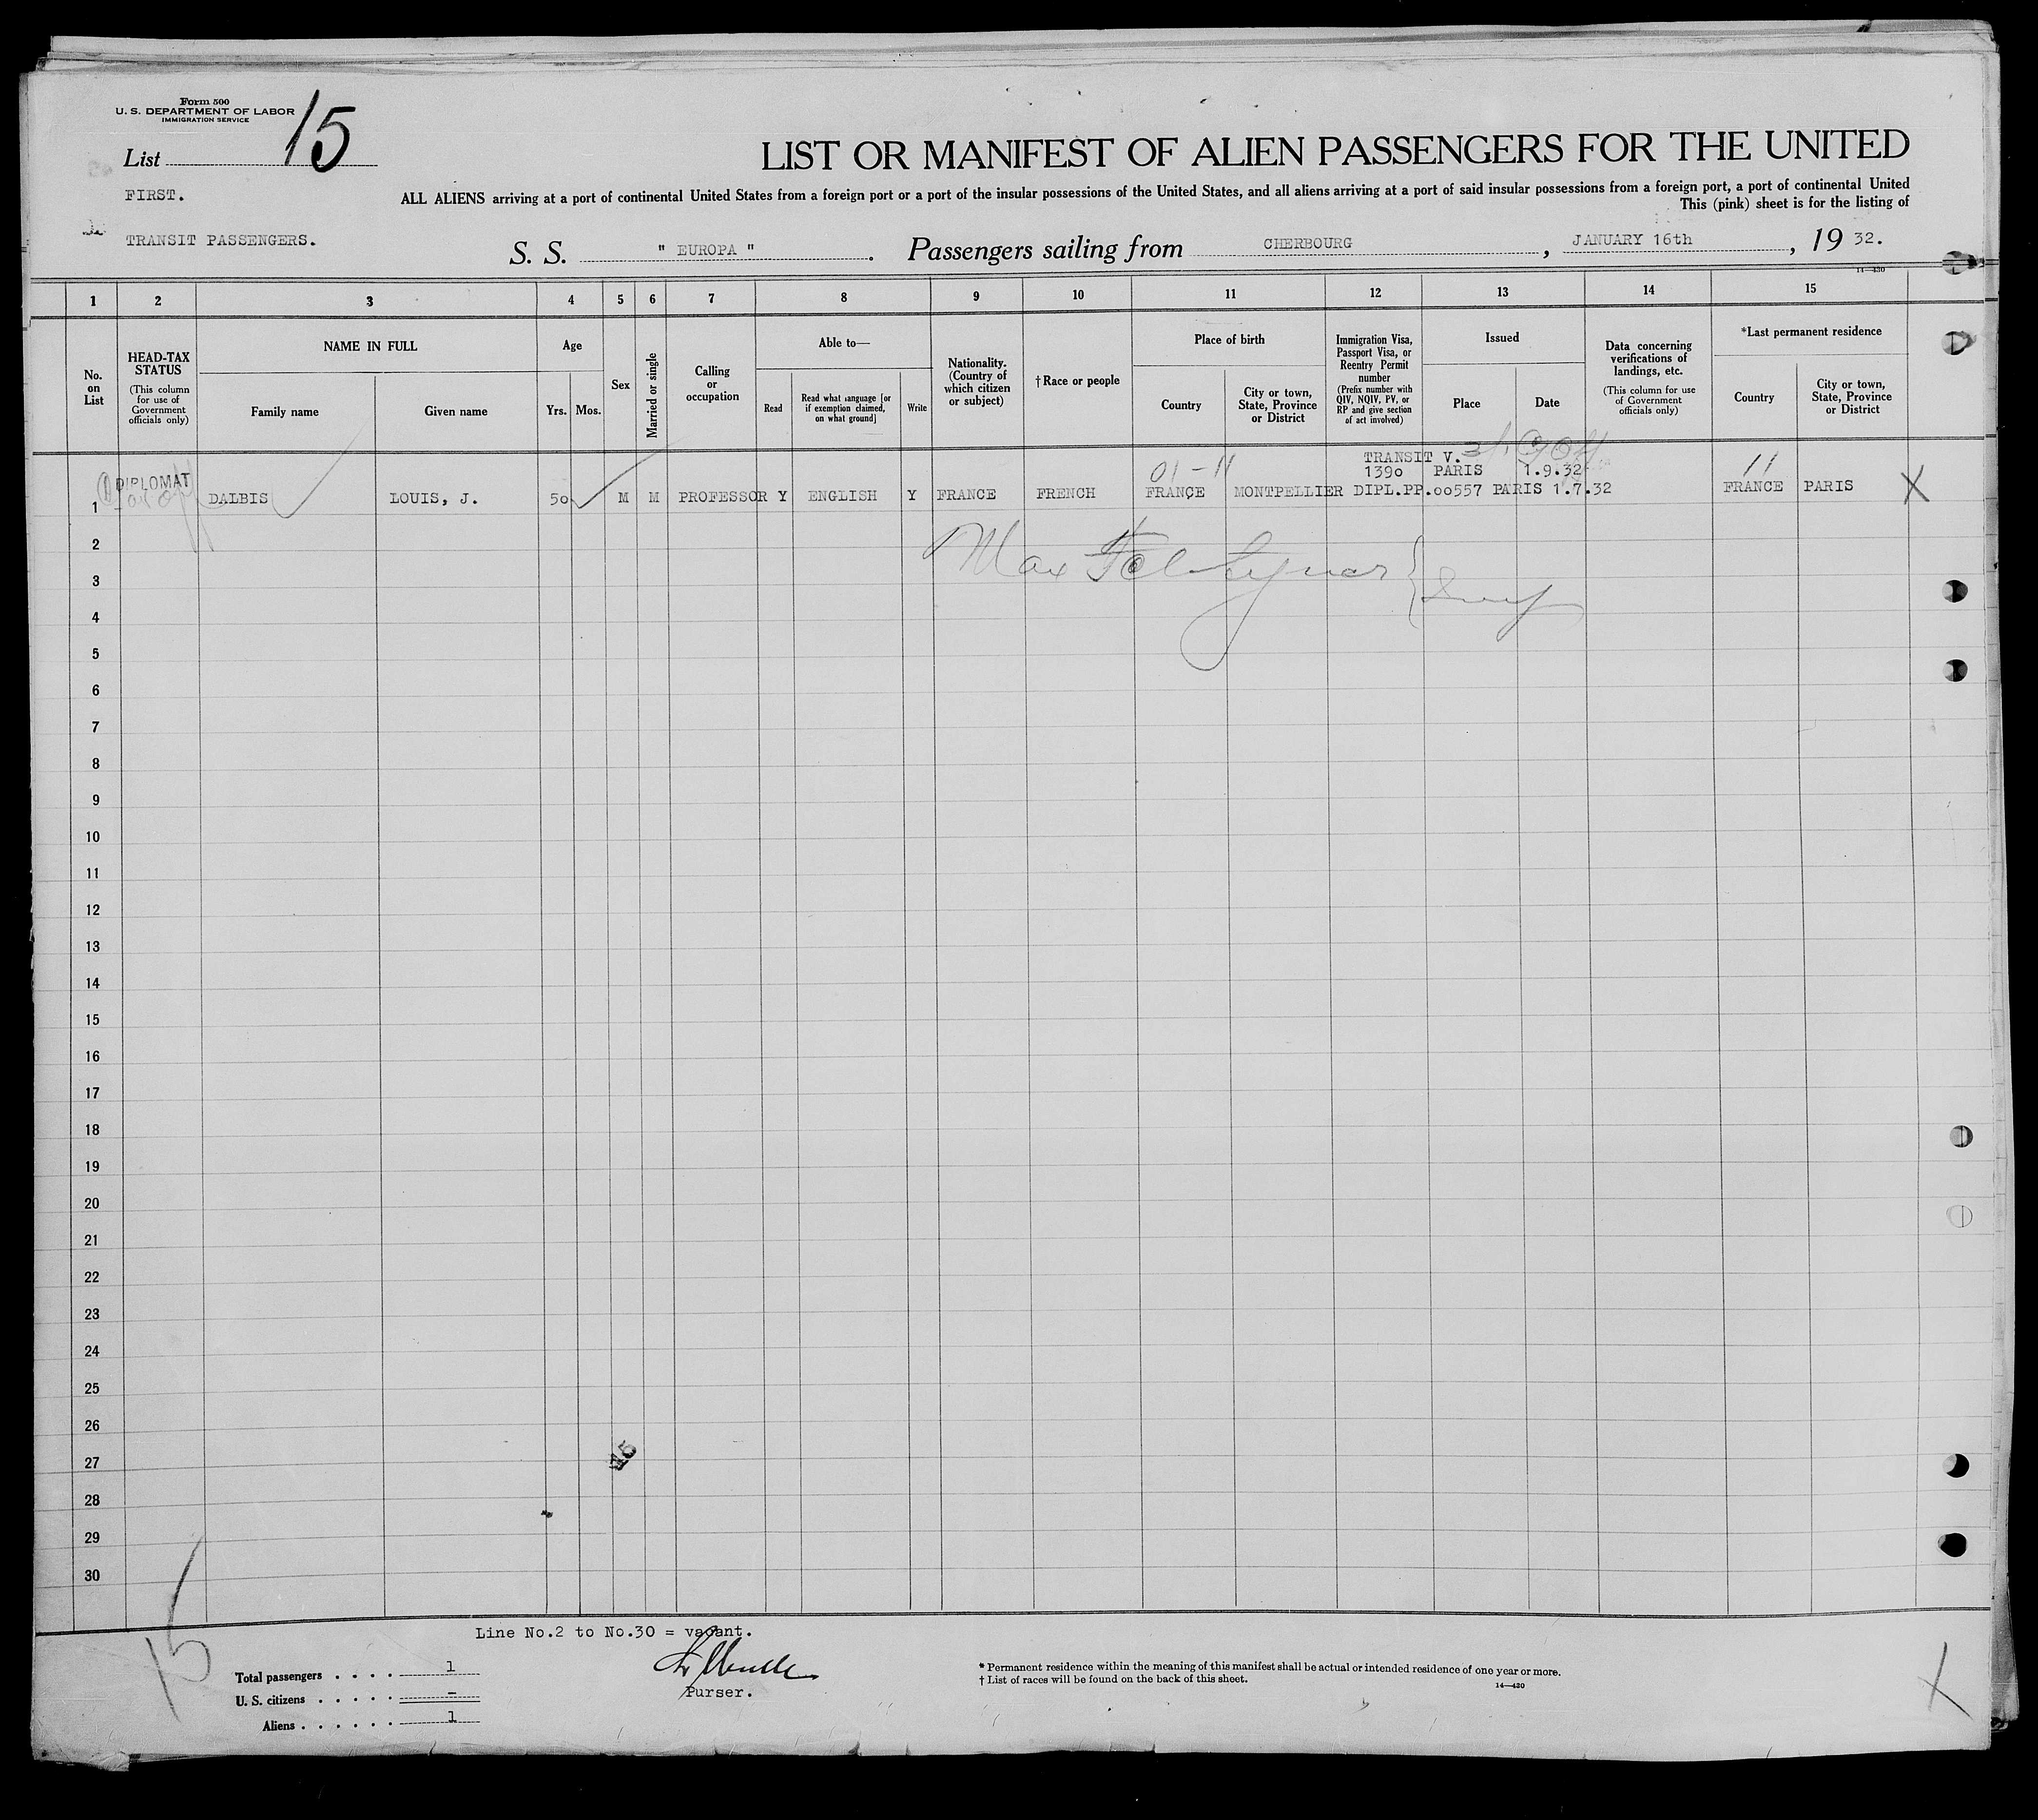 Form 500
U. S. DEPARTMENT OF LABOR
IMMIGRATION SERVICE
List 15
LIST OR MANIFEST OF ALIEN PASSENGERS FOR THE UNITED
FIRST.
ALL ALIENS arriving at a port of continental United States from a foreign port or a port of the insular possessions of the United States, and all aliens arriving at a port of said insular possessions from a foreign port, a port of continental United
This (pink) sheet is for the listing of
TRANSIT PASSENGERS.
S. S. " EUROPA ". Passengers sailing from CHERBOURG, JANUARY 16th, 19 32.
14—430
1 2 3 4 5 6 7 8 9 10 11 12 13 14 15
No. on List
HEAD-TAX STATUS
(This column for use of Government officials only)
NAME IN FULL
Family name
Given name
Age
Yrs. Mos.
Sex
Married or single
Calling or occupation
Able to—
Read
Read what language [or if exemption claimed, on what ground]
Write
Nationality. (Country of which citizen or subject)
†Race or people
Place of birth
Country
City or town, State, Province or District
Immigration Visa, Passport Visa, or Reentry Permit number
(Prefix number with QIV, NQIV, PV, or RP and give section of act involved)
Issued
Place
Date
Data concerning verifications of landings, etc.
(This column for use of Government officials only)
*Last permanent residence
Country
City or town, State, Province or District
01-11
TRANSIT V.
11
DIPLOMAT
1390 PARIS 1.9.32
1 DALBIS LOUIS, J. 50 M M PROFESSOR Y ENGLISH Y FRANCE FRENCH FRANCE MONTPELLIER DIPL.PP.00557 PARIS 1.7.32 FRANCE PARIS X
2
Max
3
4
5
6
7
8
9
10
11
12
13
14
15
16
17
18
19
20
21
22
23
24
25
26
27
28
29
30
15
Line No.2 to No.30 = vacant.
Purser.
Total passengers . . . . 1
U. S. citizens . . . . . –
Aliens . . . . . . 1
* Permanent residence within the meaning of this manifest shall be actual or intended residence of one year or more.
† List of races will be found on the back of this sheet.
14—430
X